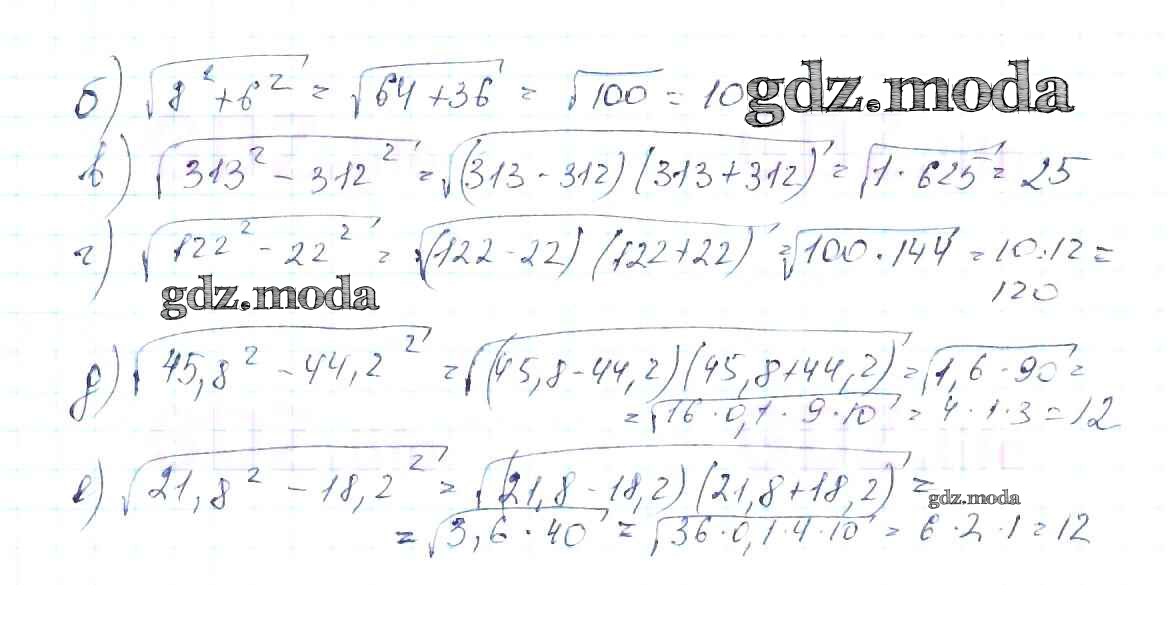 б) √(8² + 6²) = √(64 + 36) = √100 = 10
gdz.moda
в) √(313² - 312²) = √((313 - 312)(313 + 312)) = √(1 · 625) = 25
г) √(122² - 22²) = √((122 - 22)(122 + 22)) = √(100 · 144) = 10 · 12 =
120
gdz.moda
д) √(45,8² - 44,2²) = √((45,8 - 44,2)(45,8 + 44,2)) = √(1,6 · 90) =
= √(16 · 0,1 · 9 · 10) = 4 · 1 · 3 = 12
е) √(21,8² - 18,2²) = √((21,8 - 18,2)(21,8 + 18,2)) =
gdz.moda
= √(3,6 · 40) = √(36 · 0,1 · 4 · 10) = 6 · 2 · 1 = 12